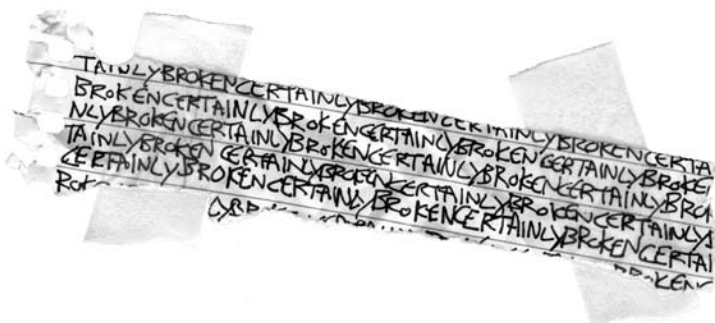 TAINLYBROKENCERTAINLYBROKENCERTAINLYBROKENCERTA
BROKENCERTAINLYBROKENCERTAINLYBROKENCERTAINLYBROKE
NLYBROKENCERTAINLYBROKENCERTAINLYBROKENCERTAINLYBRO
TAINLYBROKEN CERTAINLYBROKENCERTAINLYBROKENCERTAINLY
CERTAINLYBROKENCERTAINLYBROKENCERTAINLYBROKENCERTAI